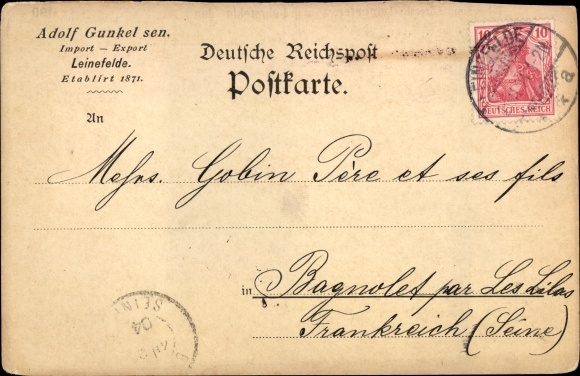 Adolf Gunkel sen.
Import — Export
Leinefelde.
Etablirt 1871.
Deutsche Reichspost
Postkarte.
10 10
DEUTSCHES REICH
FELDE
a
An
Messrs. Gobin Père et ses fils
in Bagnolet par Les Lilas
Frankreich (Seine)
SEINE
04